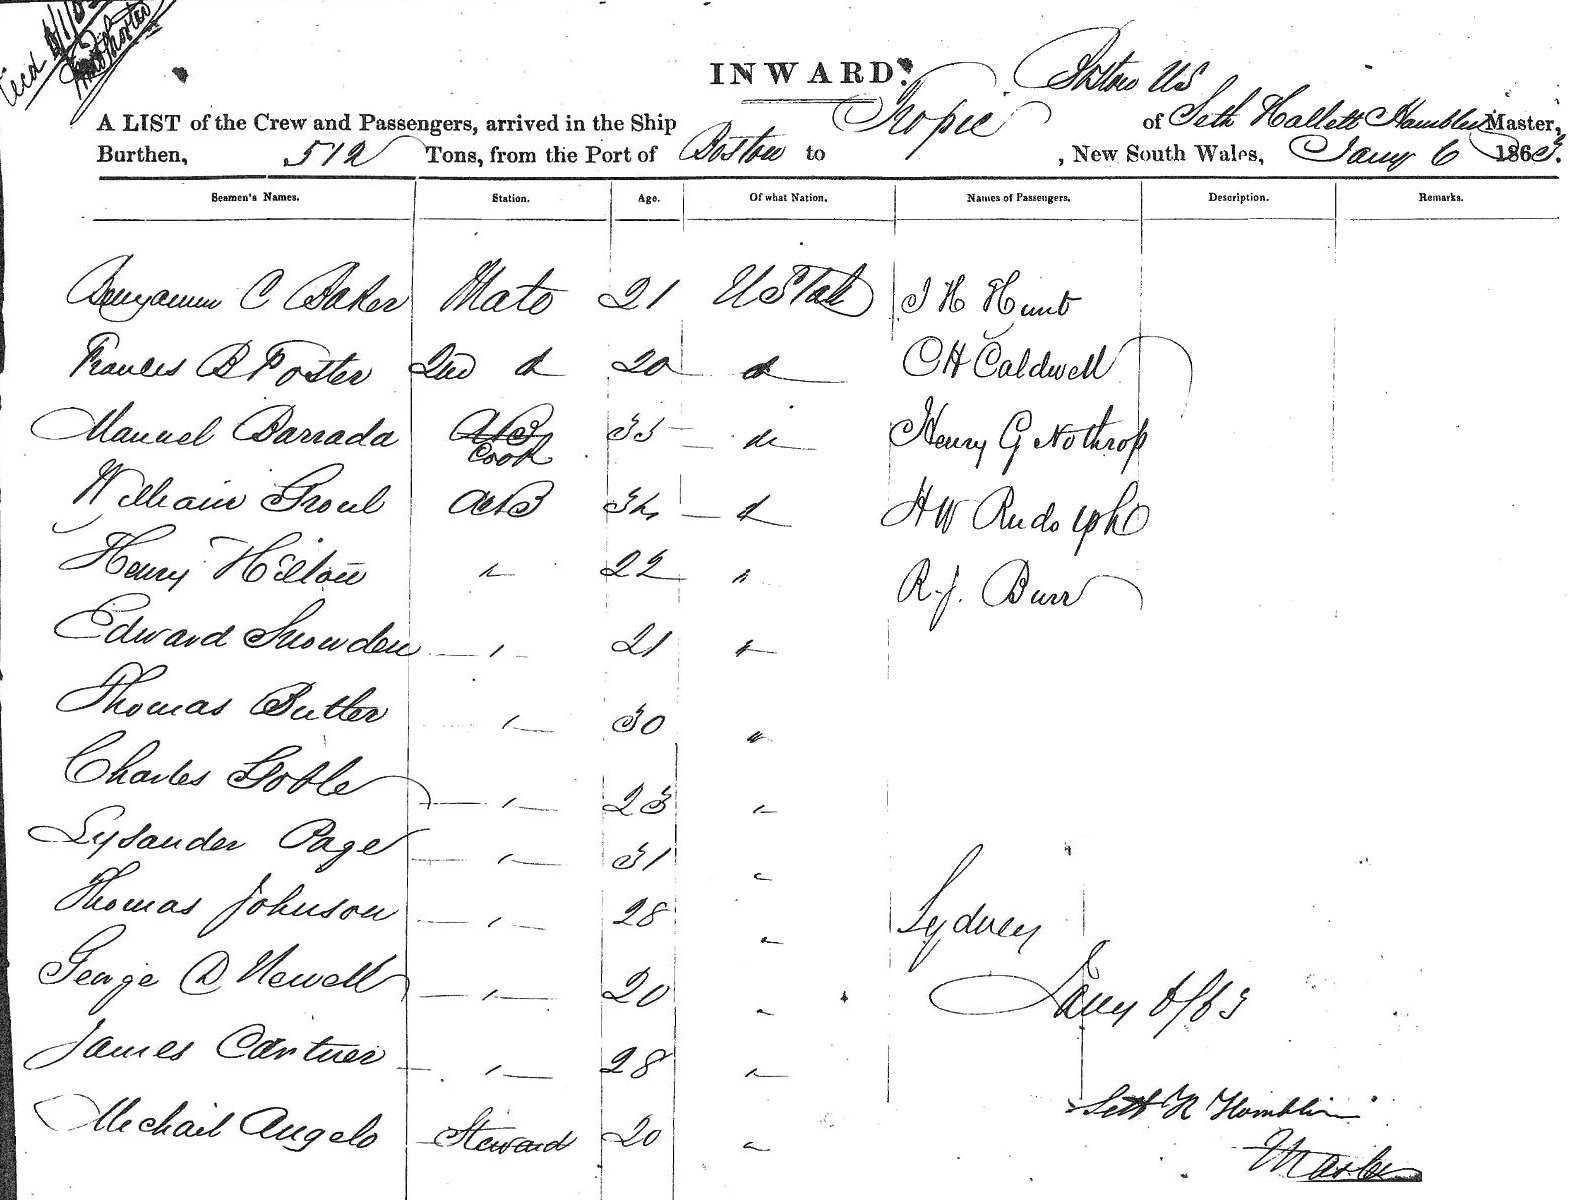 INWARD.
Boston US
A LIST of the Crew and Passengers, arrived in the Ship Tropic of Seth Hallett Hamblin Master,
Burthen, 512 Tons, from the Port of Boston to , New South Wales, Jany 6 1863.
Seamen's Names. Station. Age. Of what Nation. Names of Passengers. Description. Remarks.
Benjamin C Baker Mate 21 U State J H Hunt
Frances B Foster 2nd d 20 d C H Caldwell
Manuel Barrada A B 35 do Henry G Nothrop
Cook
William Groul A B 34 d H W Rudolph
Henry Hilton " 22 " R. J. Burr
Edward Snowden " 21 "
Thomas Butler " 30 "
Charles Goble " 23 "
Lysander Page " 31 "
Thomas Johnson " 28 " Sydney
George D Newell " 20 " Jany 6/63
James Cartner " 28 "
Seth H Hamblin
Mechail Angelo Steward 20 "
Master